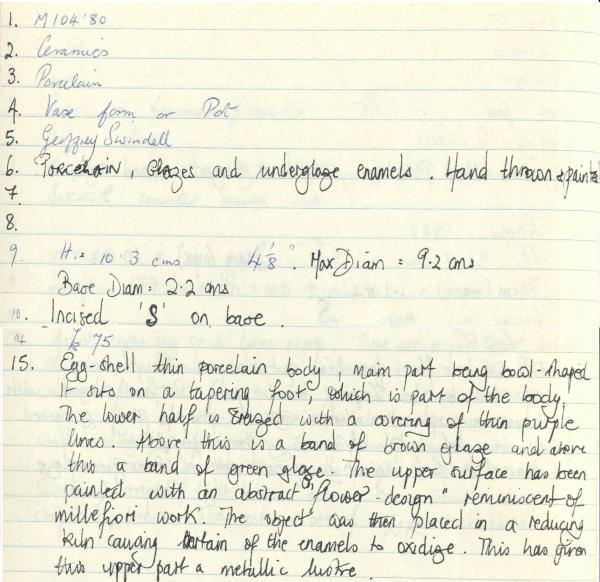 1. M104'80
2. Ceramics
3. Porcelain
4. Vase form or Pot
5. Geoffrey Swindell
6. Porcelain, Glazes and underglaze enamels. Hand thrown & painted
7.
8.
9. H. = 10.3 cms 4 1/8". Max Diam = 9.2 cms
Base Diam: 2.2 cms
10. Incised 'S' on base.
14 £75
15. Egg-shell thin porcelain body, main part being bowl-shaped
It sits on a tapering foot, which is part of the body.
The lower half is glazed with a covering of thin purple
lines. Above this is a band of brown glaze and above
this a band of green glaze. The upper surface has been
painted with an abstract "flower-design" reminiscent of
millefiori work. The object was then placed in a reducing
kiln causing certain of the enamels to oxidize. This has given
this upper part a metallic lustre.